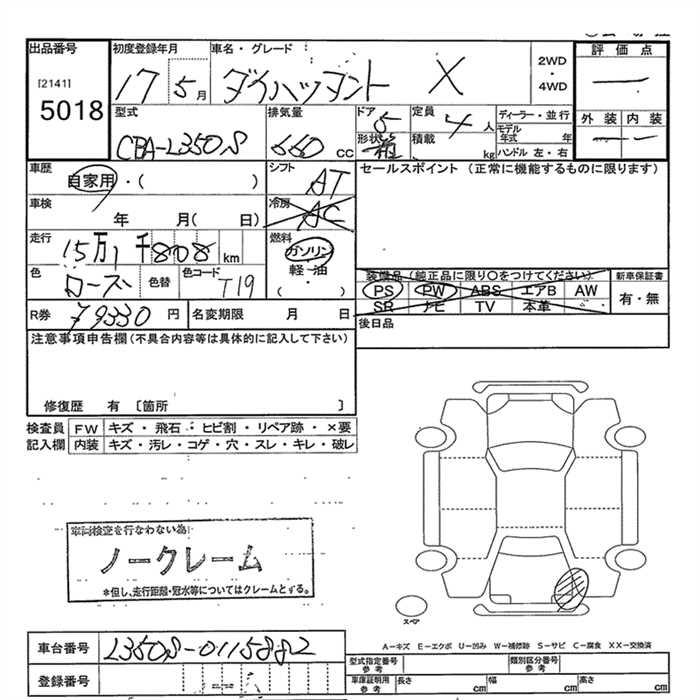 出品番号 初度登録年月 車名・グレード 評価点
[2141] 17 5月 ダイハツ タント X 2WD・4WD
5018
型式 排気量 ドア 定員 ディーラー・並行 外装 内装
CBA-L350S 660 CC 5 4人 モデル年式 年
形状 箱 積載 kg ハンドル 左・右
車歴 シフト セールスポイント (正常に機能するものに限ります)
自家用・( ) AT
車検 年 月( 日) 冷房 AC
走行 燃料
15万1千808km ガソリン
色 色替 色コード 軽・油
ローズ T19 ・( )
装備品 (純正品に限り○をつけてください) 新車保証書
PS PW ABS エアB AW 有・無
SR ナビ TV 本革
R券 ¥9330円 名変期限 月 日 後日品
注意事項申告欄(不具合内容等は具体的に記入して下さい)
修復歴 有 [箇所 ]
検査員 FW キズ・飛石・ヒビ割・リペア跡・×要
記入欄 内装 キズ・汚レ・コゲ・穴・スレ・キレ・破レ
車両検査を行なわない為
ノークレーム
*但し、走行距離・冠水等についてはクレームとする。
スペア
A-キズ E-エクボ U-凹み W-補修跡 S-サビ C-腐食 XX-交換済
車台番号 L350S-0115882
型式指定番号 参考 類別区分番号 参考
登録番号
車庫証明用 参考 長さ cm 幅 cm 高さ cm